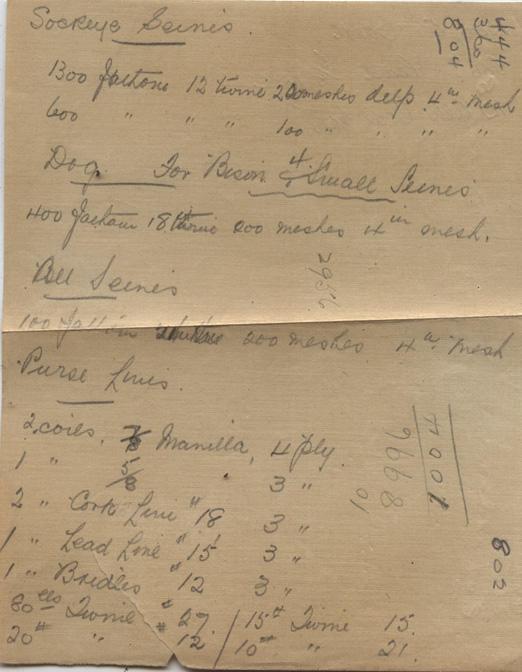 Sockeye Seines.
444
360
804
1300 Fathoms 12 twine 200 meshes deep 4 in mesh
600 " " " 100 " " " "
Dog For Bison & 4 Small Seines
400 Fathom 18 twine 200 meshes 4 in mesh.
All Seines
100 Fathom 200 meshes 4 in mesh
2956
Purse Lines.
2 coils, 7/8 Manilla, 4 ply.
1 " 5/8 3 "
2 " Cork Line " 18 3 "
1 " Lead Line " 15 3 "
1 " Bridles " 12 3 "
80 lbs Twine # 27 / 15# Twine 15.
20# " # 12 / 10# " 21.
10
8996
1004
802